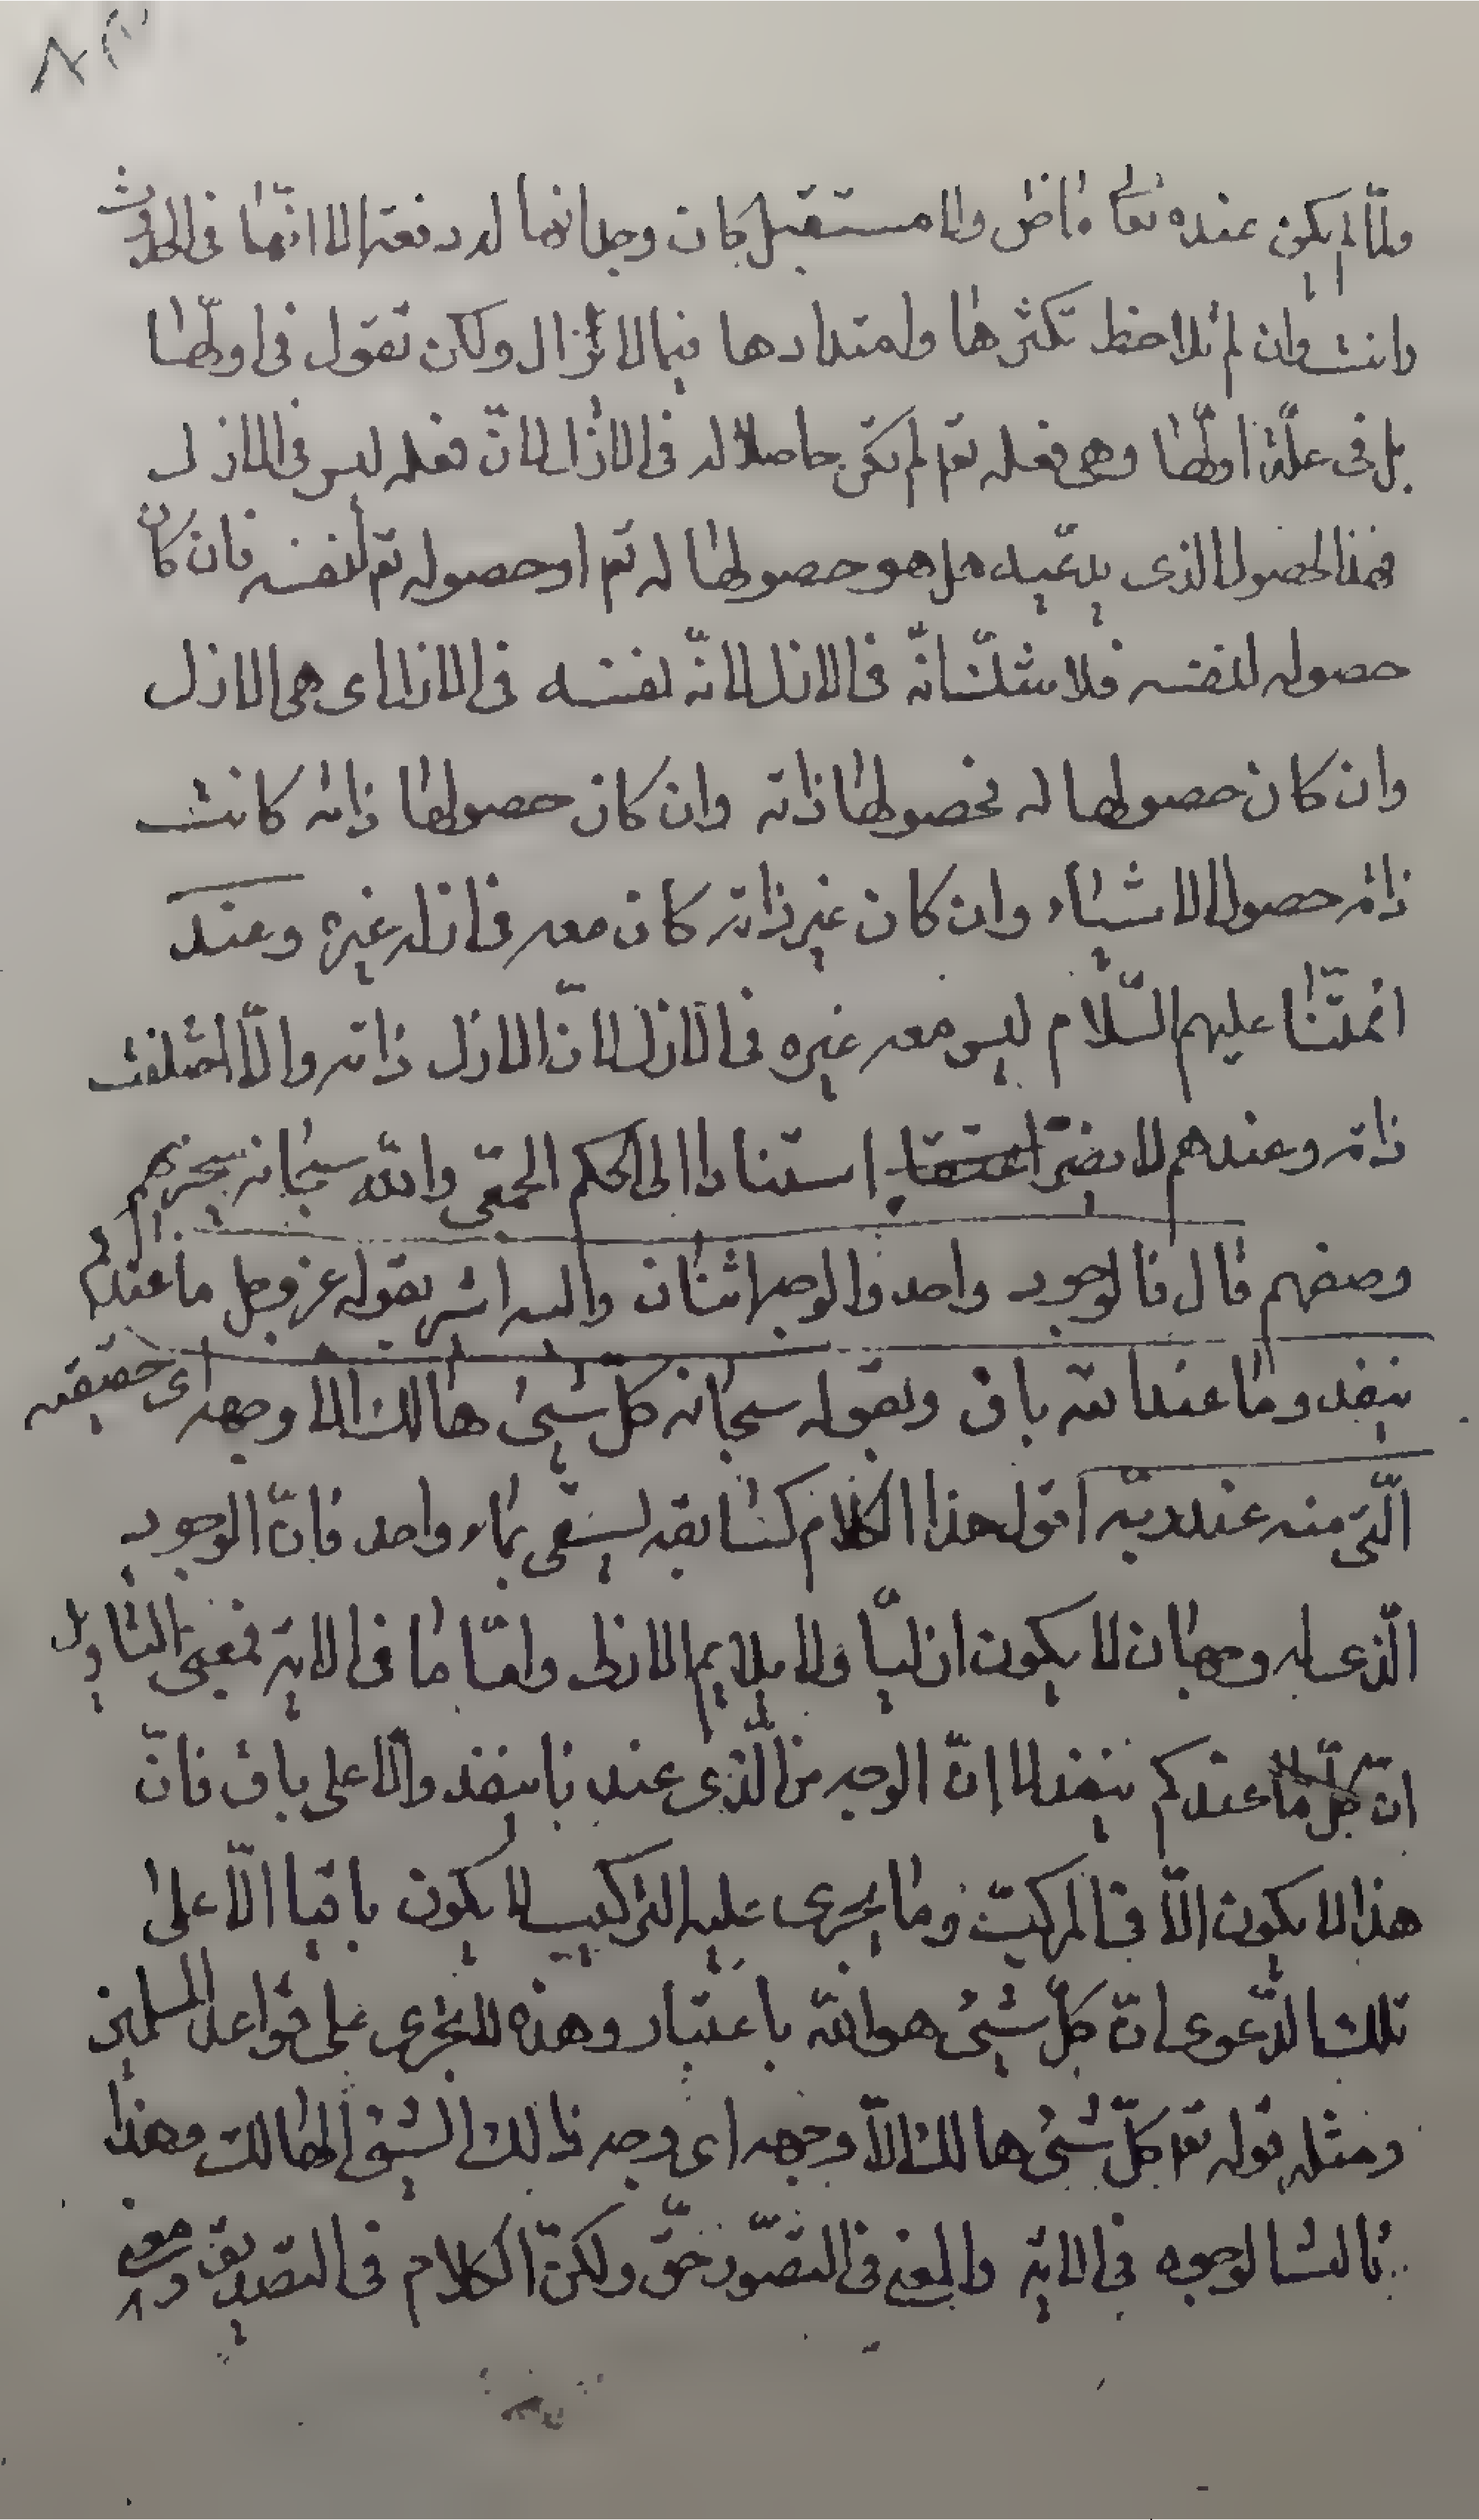 ولما لم يكن عنده تعالى ماض ولا مستقبل كان وجدانها له دفعة الا انها في الحدوث
وانت وان لم تلاحظ تكثرها وامتدادها فيما لا يزال ولكن تقول في اولها
بل في علة اولها وهي فعله تع لم تكن حاصلا له في الازل لان فعله ليس في الازل
فهذا الحصول الذي يدعيه هل هو حصولها له تع او حصوله تع لنفسه فان كان
حصوله لنفسه فلا شك انه في الازل لانه نفسه في الازل اي هي الازل
وان كان حصولها له فحصولها ذاته وان كان حصولها ذاته كانت
ذاته حصول الاشياء وان كان غير ذاته كان معه في ازله غيره وعند
ائمتنا عليهم السّلام ليس معه غيره في الازل لانّ الازل ذاته والّا اختلفت
ذاته وعندهم لا يضرّ استنادا الى الحكم الحمقى واللّه سبحانه سيجزيهم
وصفهم قال فالوجود واحد والوجه اثنان واليه اشير بقوله عز وجل ما عندكم
ينفد وما عند اللّه باق وبقوله سبحانه كلّ شيئ هالك الا وجهه اي حقيقته
الّتي منه عند ربّه اقول هذا الكلام كسابقه يسقى بماء واحد فانّ الوجود
الّذي له وجهان لا يكون ازليّا ولا يلايم الازل وامّا ما في الاية فمعنى التاويل
انّ كلّ ما عندكم ينفد لا انّ الوجه من الّذي عندنا ينفد والاعلى باق فانّ
هذا لا يكون الّا في المركّب وما يجري عليه التركيب لا يكون باقيا الّا على
تلك الدّعوى انّ كلّ شيئ هو اللّه باعتبار وهذه لا تجري على قواعد المسلمين
ومثله قوله تعا كلّ شيئ هالك الّا وجهه اي وجه ذالك الشيئ الهالك وهذا
ثالث الوجوه في الاية والمعنى في التصوّر حقّ ولكنّ الكلام في التصديق